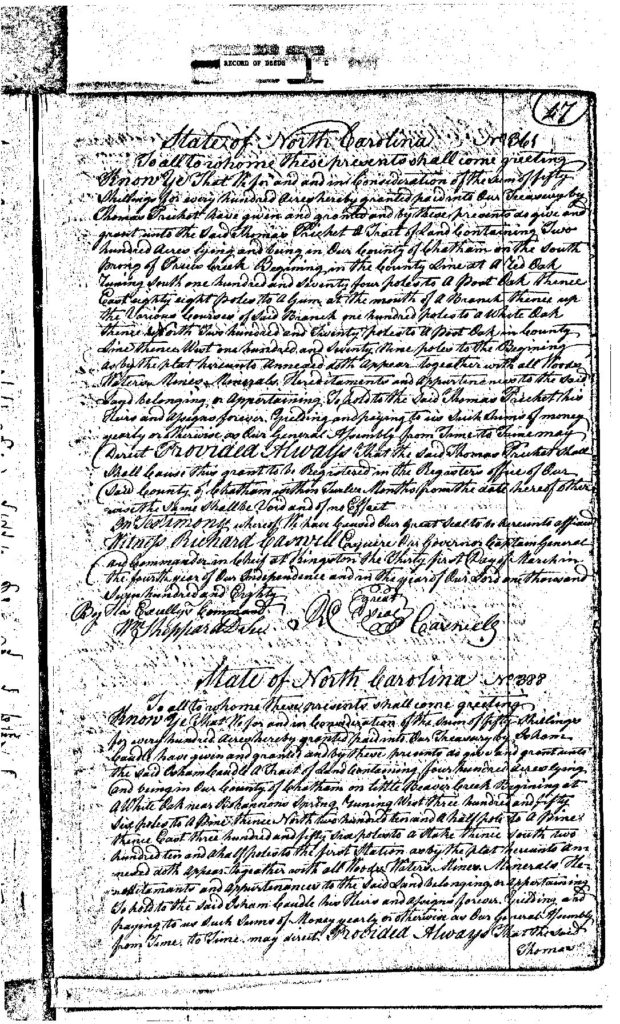 RECORD OF DEEDS
47
State of North Carolina No 361
To all to whome These presents shall come greeting
Know Ye That We for and and in Consideration of the sum of fifty
Shillings for every hundred Acres hereby granted paid into Our Treasury by
Thomas Pricket have given and granted and by these presents do give and
grant unto the Said Thomas Pricket A Tract of Land Containing Two
hundred Acres Lying and being in Our County of Chatham on the South
prong of Creek Begining in the County Line at A Red Oak
runing South one hundred and Seventy four poles to A Post Oak thence
East eighty eight poles to A Gum at the mouth of A Branch thence up
the Various Courses of Said Branch one hundred poles to A White Oak
thence North Two hundred and Twenty poles to A Post Oak in County
Line thence West one hundred and Seventy Nine poles to the Begining
as by the plat hereunto annexed doth Appear together with all Woods
Waters Mines Minerals Hereditaments and Appurtinances to the Said
Land Belonging or Appertaining To hold to the Said Thomas Pricket his
Heirs and Assigns forever Yielding and paying to us Such Sums of money
yearly or otherwise as Our General Assembly from Time to Time may
Direct Provided Always That the Said Thomas Pricket Shall
Shall Cause this grant to be Registered in the Regesters office of Our
Said County of Chatham within Twelve Months from the date hereof other
wise the Same Shall be Void and of no Effect
In Testimony whereof We have Caused Our Great Seal to be hereunto affixed
Witness Richard Caswell Esquire Our Governor Captain General
and Commander in Chief at Kingston the Thirty first Day of March in
the fourth year of Our Independence and in the year of Our Lord one thousand
Seven hundred and Eighty
By His Excellys Command great
Wm Sheppard D Sec R C Seal Caswell
State of North Carolina No 388
To all to whome these presents shall come greeting
Know Ye That We for and in Consideration of the Sum of fifty Shillings
for every hundred Acres hereby granted paid into Our Treasury by Isham
Caudle have given and granted and by these presents do give and grant unto
the Said Isham Caudle A Tract of Land Containing four hundred Acres lying
and being in Our County of Chatham on Little Beaver Creek Begining at
A White Oak near Bohannons Spring runing West three hundred and fifty
Six poles to A Pine thence North two hundred ten and A half pole to A Pine
thence East three hundred and fifty Six poles to A Stake thence South two
hundred ten and A half poles to the first Station as by the plat hereunto an
nexed doth Appear together with all Woods Waters Mines Minerals He-
reditaments and Appurtenances to the Said Land Belonging or Appertaining
To hold to the Said Isham Caudle his Heirs and Assigns forever Yielding and
paying to us Such Sums of Money yearly or otherwise as Our General Assembly
from Time to Time may direct Provided Always That the Said
Thomas